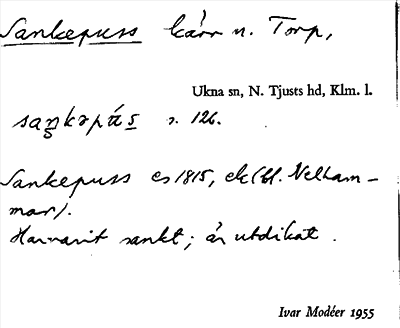 Sankepuss kärr n. Torp,
Ukna sn, N. Tjusts hd, Klm. l.
saŋkəpús s. 126.
Sankepuss es 1815, ek (bl. Nelham-
mar).
Har varit sankt; är utdikat.
Ivar Modéer 1955